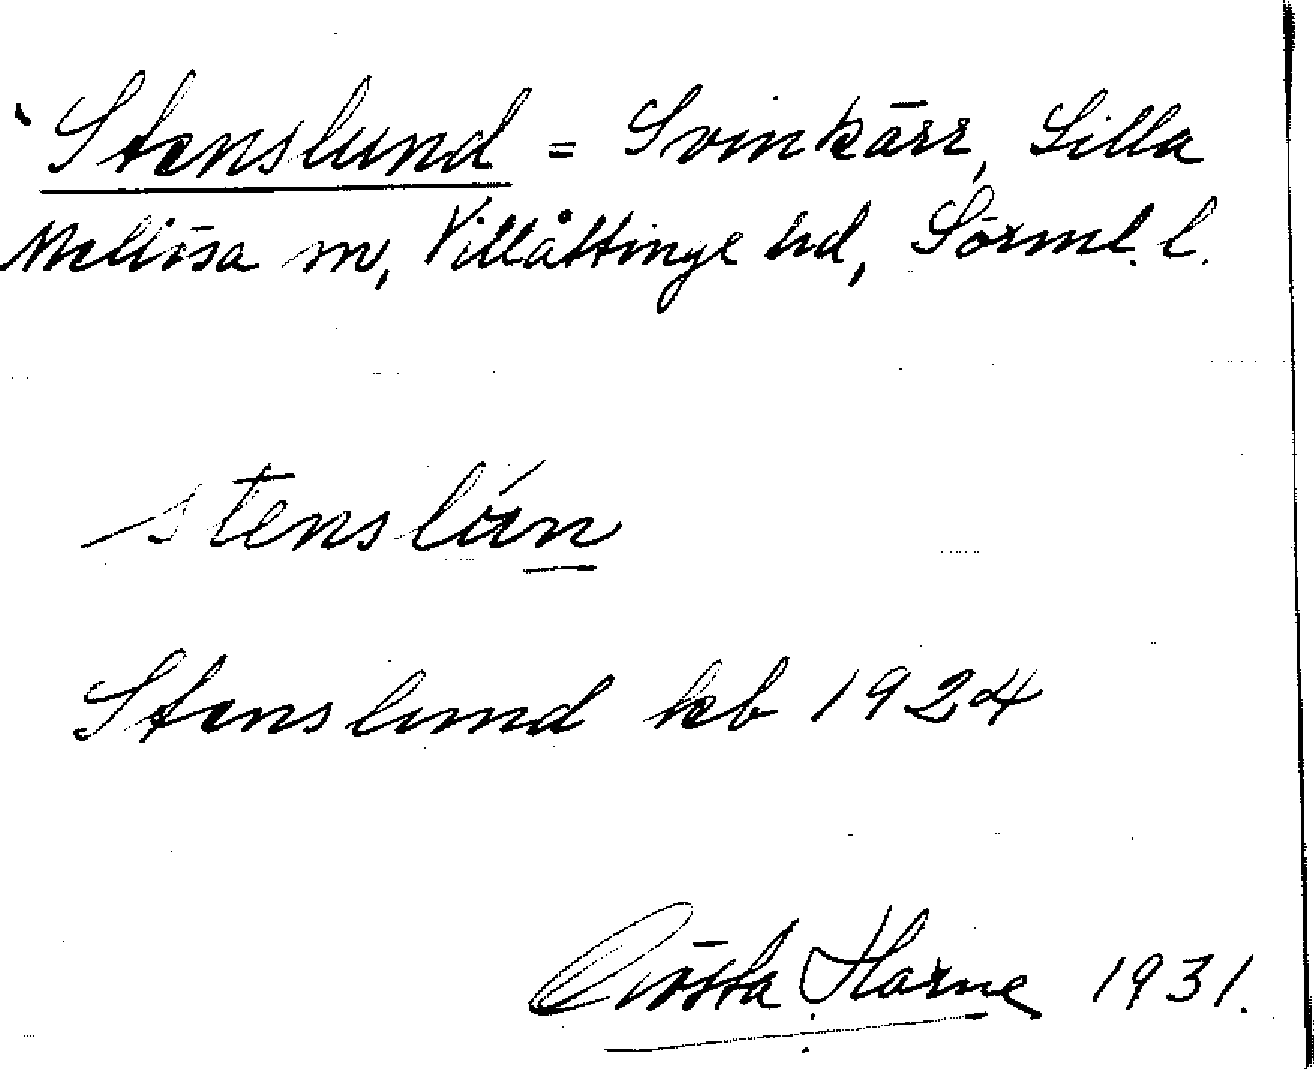 Stenslund = Svinkärr, Lilla
Mellösa sn, Villåttinge hd, Sörml. l.
stenslun
Stenslund kb 1924
Gösta Harne 1931.